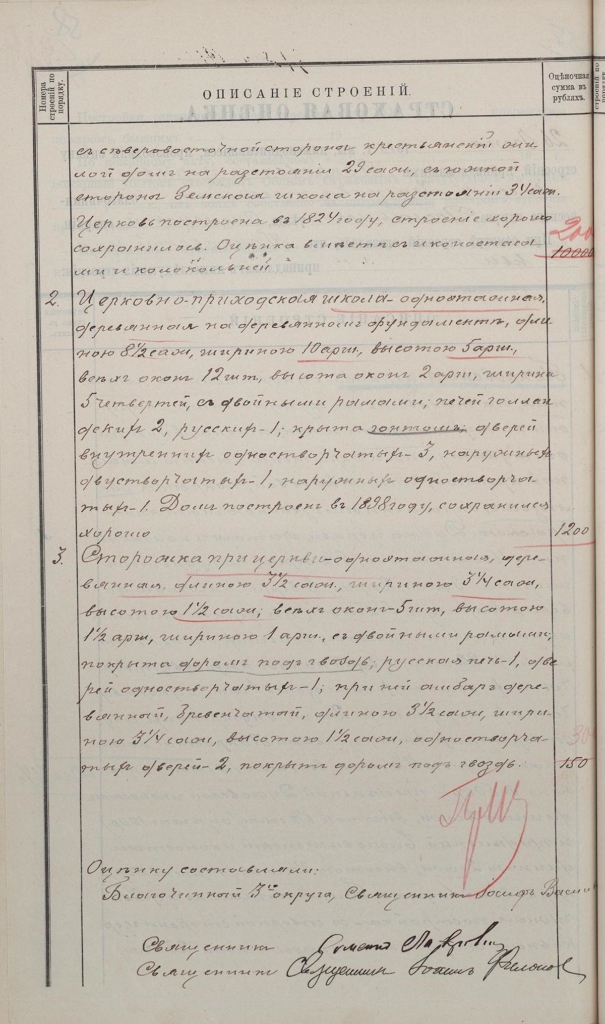 Номера строеній по порядку.
ОПИСАНІЕ СТРОЕНІЙ.
Оцѣночная сумма въ рубляхъ.
съ сѣверовосточной стороны крестьянскій жи-
лой домъ на разстояніи 29 саж, съ южной
стороны Земская школа на разстояніи 34 саж.
Церковь построена въ 1824 году, строеніе хорошо
сохранилось. Оцѣнка вмѣстѣ съ иконостаса-
ми и колокольней
10000
2. Церковно-приходская школа - одноэтажная,
деревянная на деревянномъ фундаментѣ, дли-
ною 8½ саж, шириною 10 арш, высотою 5 арш,
всѣхъ оконъ 12 шт, высота оконъ 2 арш, ширина
5 четвертей, съ двойными рамами; печей голлан
дскихъ 2, русскихъ - 1; крыта гонтомъ; дверей
внутреннихъ одностворчатыхъ - 3, наружныхъ
двустворчатыхъ - 1, наружныхъ одностворча-
тыхъ - 1. Домъ построенъ въ 1898 году, сохранился
хорошо
1200
3. Сторожка при церкви - одноэтажная, дере-
вянная длиною 3½ саж, шириною 3¼ саж,
высотою 1½ саж; всѣхъ оконъ - 5 шт, высотою
1½ арш, шириною 1 арш, съ двойными рамами,
покрыта доромъ подъ гвоздь; русская печь - 1, две
рей одностворчатыхъ - 1; при ней амбаръ дере-
вянный, бревенчатый, длиною 3½ саж, шири-
ною 3¼ саж, высотою 1½ саж, одностворча-
тыхъ дверей - 2, покрытъ доромъ подъ гвоздь.
150
Оцѣнку составляли:
Благочинный 3го округа, Священникъ Іосифъ
Священникъ
Священникъ Священникъ Іоаннъ